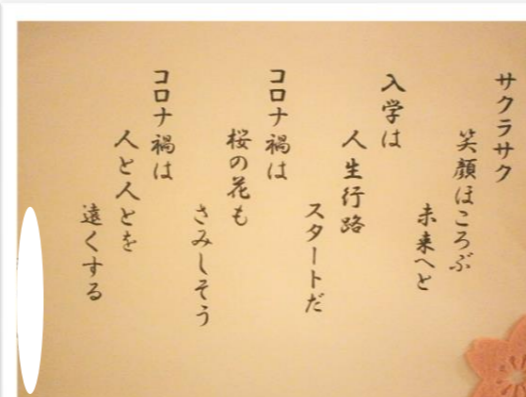 サクラサク
笑顔ほころぶ
未来へと
入学は
人生行路
スタートだ
コロナ禍は
桜の花も
さみしそう
コロナ禍は
人と人とを
遠くする